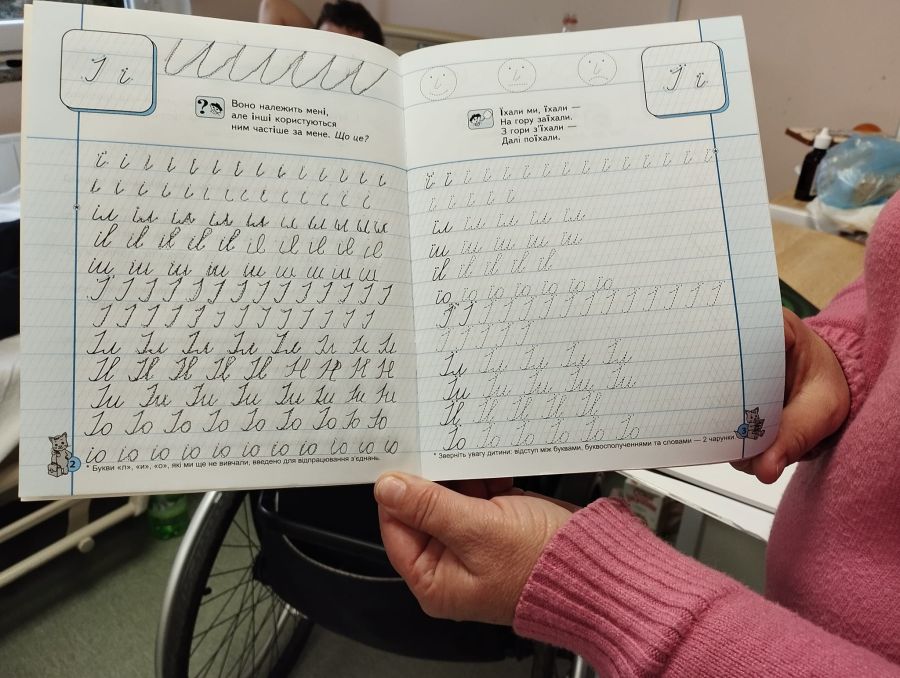 І і
Воно належить мені,
але інші користуються
ним частіше за мене. Що це?
і і і і і і і і і і і і і
і і і і і і і і і і і і і
іл іл іл іл іл іл іл іл іл іл
ів ів ів ів ів ів ів ів ів ів
іи іи іи іи іи іи іи іи іи
І І І І І І І І І І І І І І
І І І І І І І І І І І І І
Іл Іл Іл Іл Іл Іл Іл Іл
Ів Ів Ів Ів Ів Ів Ів Ів Ів
Іи Іи Іи Іи Іи Іи Іи Іи
Іо Іо Іо Іо Іо Іо Іо Іо
іо іо іо іо іо іо іо іо іо іо
* Букви «л», «и», «о», які ми ще не вивчали, введено для відпрацювання з'єднань.
2
Ї ї
Їхали ми, їхали —
На гору заїхали.
З гори з'їхали —
Далі поїхали.
ї ї ї ї ї ї ї ї ї ї ї ї ї ї ї ї
ї ї ї ї ї
їл їл їл їл їл
їи їи їи їи їи
їв їв їв їв їв
їо їо їо їо їо їо їо
Ї Ї Ї Ї Ї Ї Ї Ї Ї Ї Ї Ї Ї Ї
Ї Ї Ї Ї Ї
Їл Їл Їл Їл
Їи Їи Їи Їи Їи
Їв Їв Їв Їв Їв
Їо Їо Їо Їо Їо Їо
* Зверніть увагу дитини: відступ між буквами, буквосполученнями та словами — 2 чарунки.
3